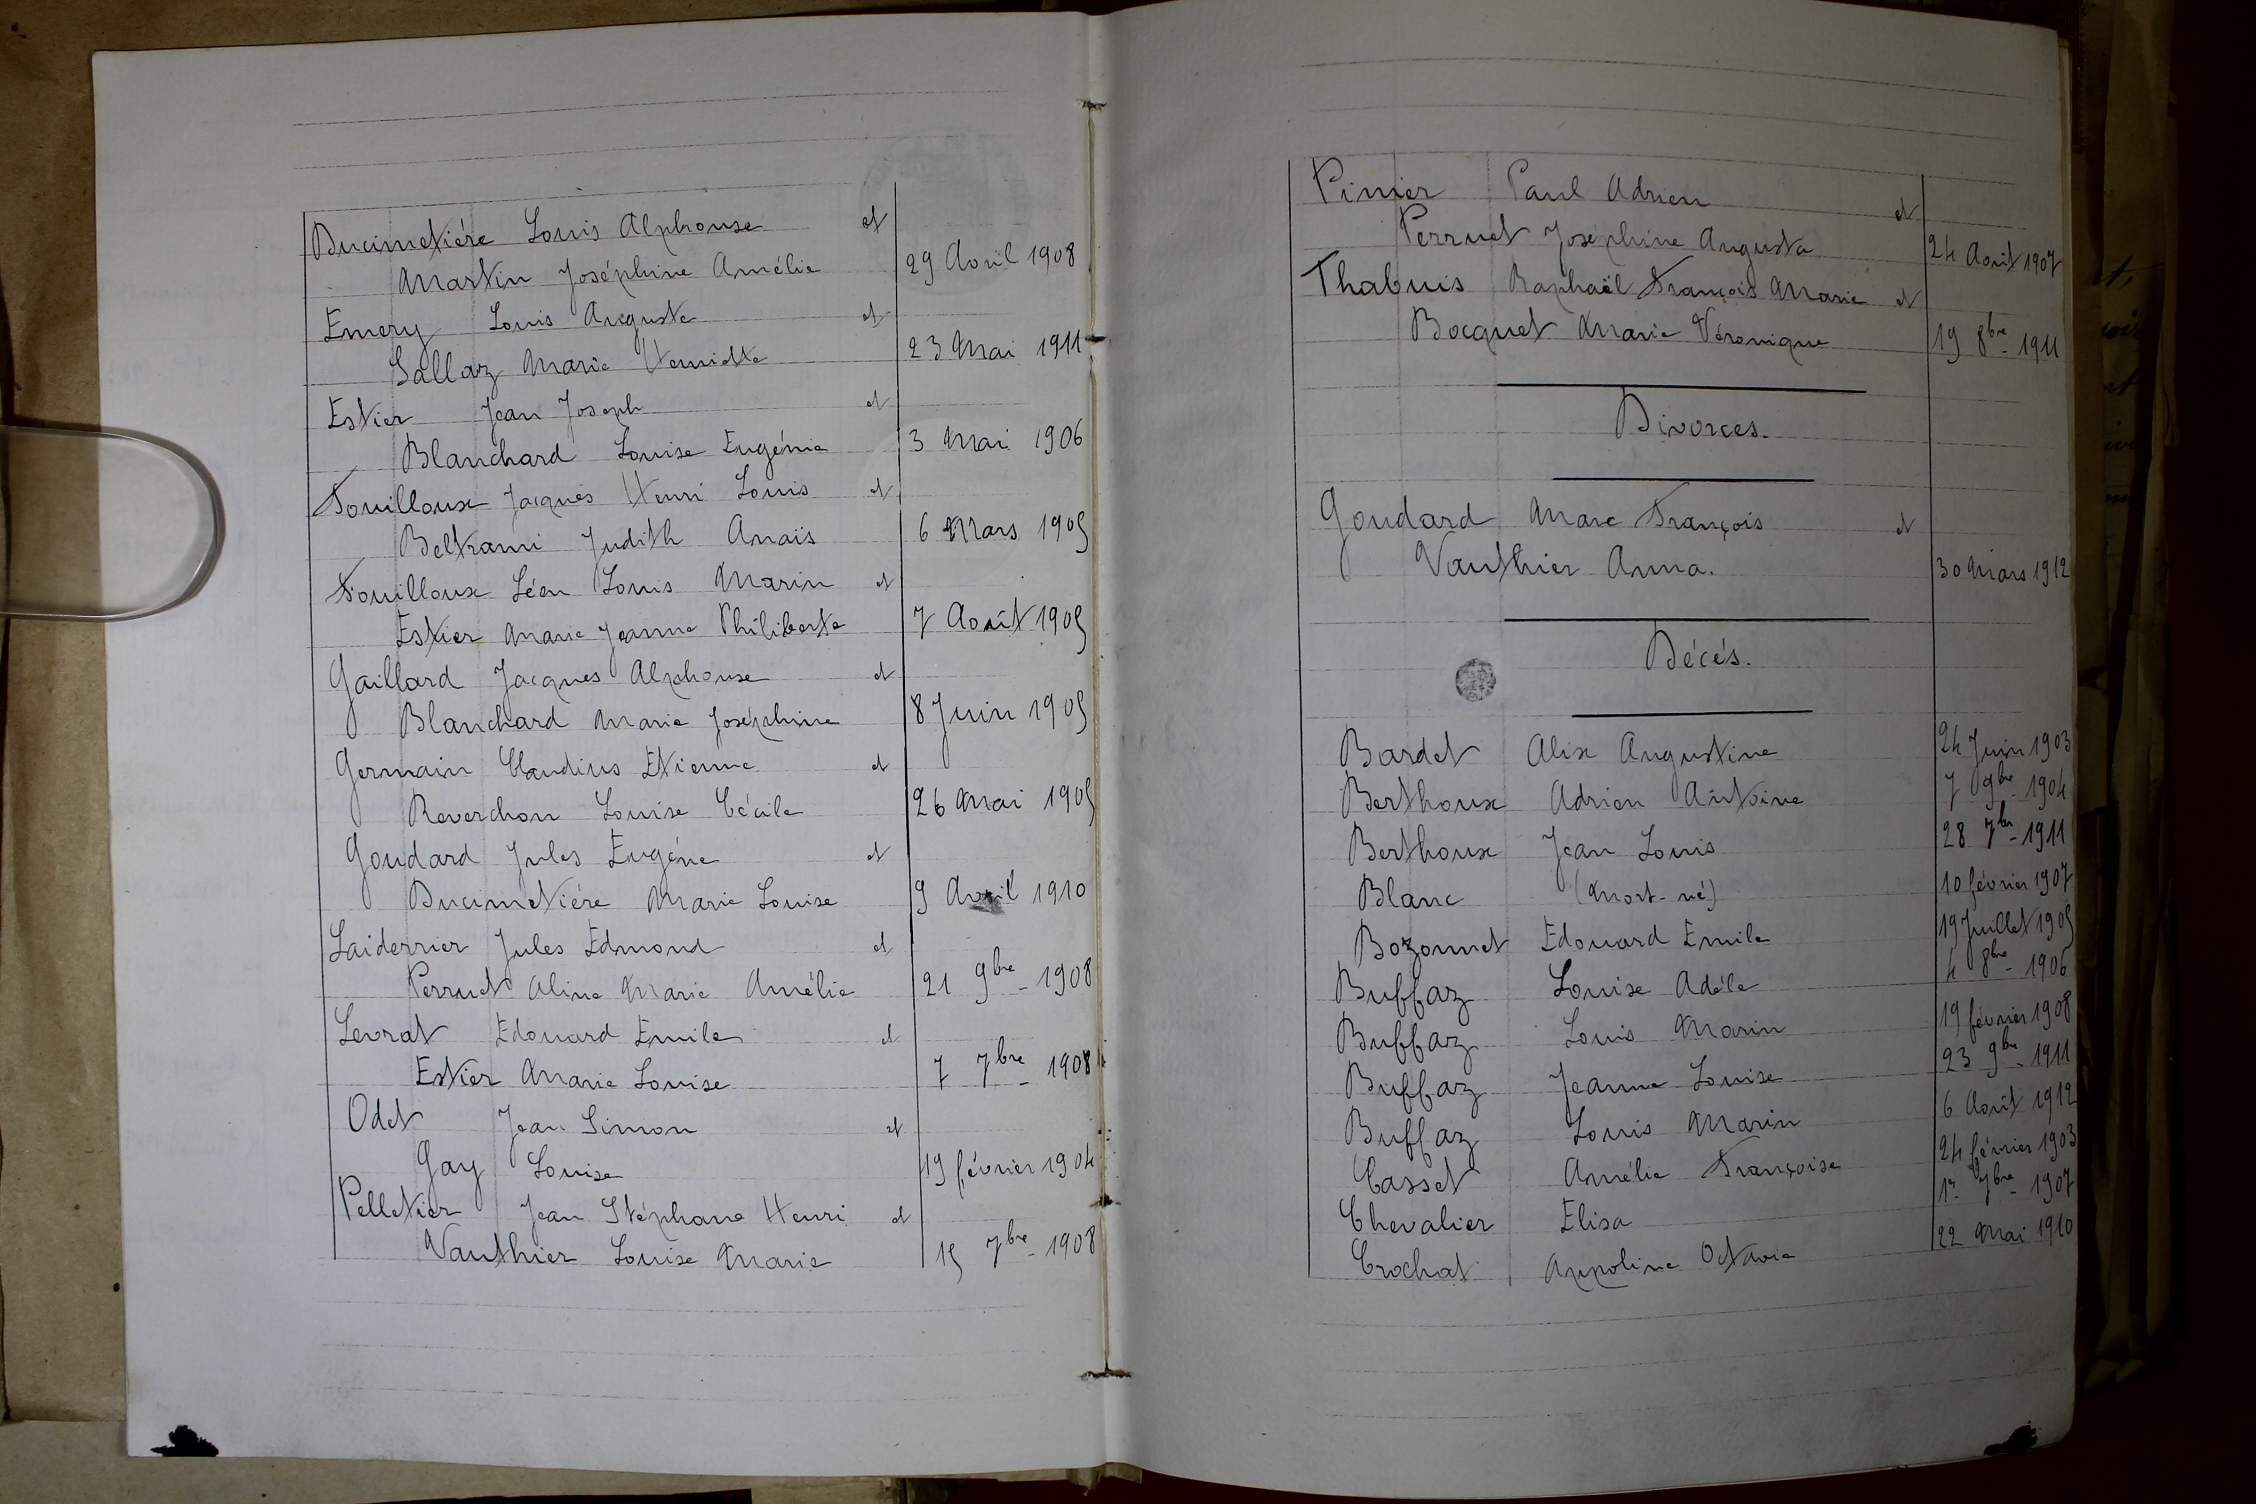 Ducimetiére Louis Alphonse et
Martin Joséphine Amélie 29 Avril 1908
Emery Louis Auguste et
Sallaz Marie Henriette 23 Mai 1911
Estier Jean Joseph et
Blanchard Louise Eugénie 3 Mai 1906
Fouilloux Jacques Henri Louis et
Beltrami Judith Anaïs 6 Mars 1905
Fouilloux Léon Louis Marin et
Estier Marie Jeanne Philiberte 7 Août 1905
Gaillard Jacques Alphonse et
Blanchard Marie Joséphine 8 Juin 1905
Germain Claudius Etienne et
Reverchon Louise Cécile 26 Mai 1905
Goudard Jules Eugéne et
Ducimetiére Marie Louise 9 Avril 1910
Laiderrier Jules Edmond et
Perrudet Aline Marie Amélie 21 9bre 1908
Levrat Edouard Emile et
Estier Marie Louise 7 7bre 1908
Odet Jean Simon et
Gay Louise 19 février 1904
Pelletier Jean Stéphane Henri et
Vauthier Louise Marie 15 7bre 1908
Pinier Paul Adrien et
Perruet Joséphine Augusta 24 Août 1907
Thabuis Raphaël François Marie et
Bocquet Marie Véronique 19 8bre 1911
Divorces.
Goudard Marc François et
Vauthier Anna. 30 Mars 1912
Décés.
Bardet Alix Augustine 24 Juin 1903
Berthoux Adrien Antoine 7 9bre 1904
Berthoux Jean Louis 28 7bre 1911
Blanc (Mort-né) 10 février 1907
Bozonnet Edouard Emile 19 Juillet 1905
Buffaz Louise Adéle 4 8bre 1906
Buffaz Louis Marin 19 février 1908
Buffaz Jeanne Louise 23 9bre 1911
Buffaz Louis Marin 6 Août 1912
Casset Amélie Françoise 24 février 1903
Chevalier Elisa 1er 7bre 1907
Crochat Appoline Octavie 22 Mai 1910